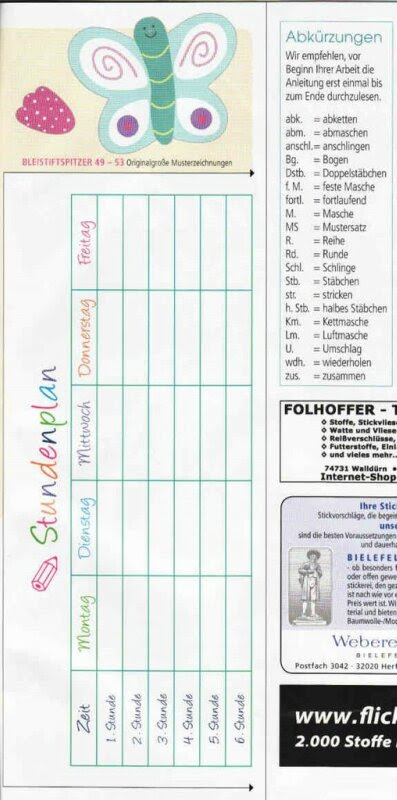 BLEISTIFTSPITZER 49 – 53 Originalgroße Musterzeichnungen
Stundenplan
Zeit Montag Dienstag Mittwoch Donnerstag Freitag
1. Stunde
2. Stunde
3. Stunde
4. Stunde
5. Stunde
6. Stunde
Abkürzungen
Wir empfehlen, vor
Beginn Ihrer Arbeit die
Anleitung erst einmal bis
zum Ende durchzulesen.
abk. = abketten
abm. = abmaschen
anschl.= anschlingen
Bg. = Bogen
Dstb. = Doppelstäbchen
f. M. = feste Masche
fortl. = fortlaufend
M. = Masche
MS = Mustersatz
R. = Reihe
Rd. = Runde
Schl. = Schlinge
Stb. = Stäbchen
str. = stricken
h. Stb. = halbes Stäbchen
Km. = Kettmasche
Lm. = Luftmasche
U. = Umschlag
wdh. = wiederholen
zus. = zusammen
FOLHOFFER - T
◊ Stoffe, Stickvlies
◊ Watte und Vliese
◊ Reißverschlüsse,
◊ Futterstoffe, Einl
◊ und vieles mehr..
74731 Walldürn •
Internet-Shop
Ihre Stic
Stickvorschläge, die begei
unse
sind die besten Voraussetzungen
und dauerha
BIELEFEL
- ob besonders f
oder offen gewe
stickerei, den gez
ist nach wie vor e
Preis wert ist. Wi
terial und bieten
Baumwolle-/Mod
Webere
BIELEFE
Postfach 3042 · 32020 Herf
www.flick
2.000 Stoffe